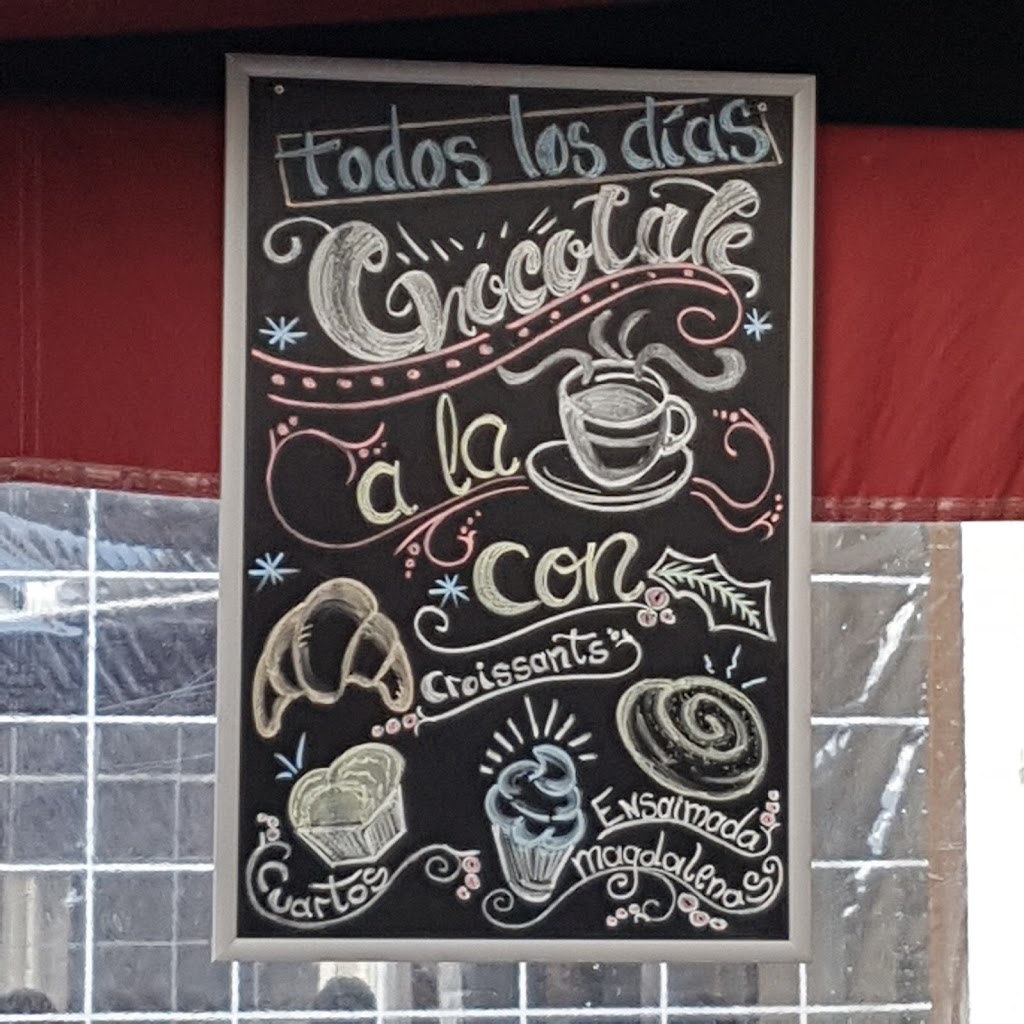 todos los días
Chocolate
a la
con
Croissants
Ensaimada
magdalenas
Cuartos